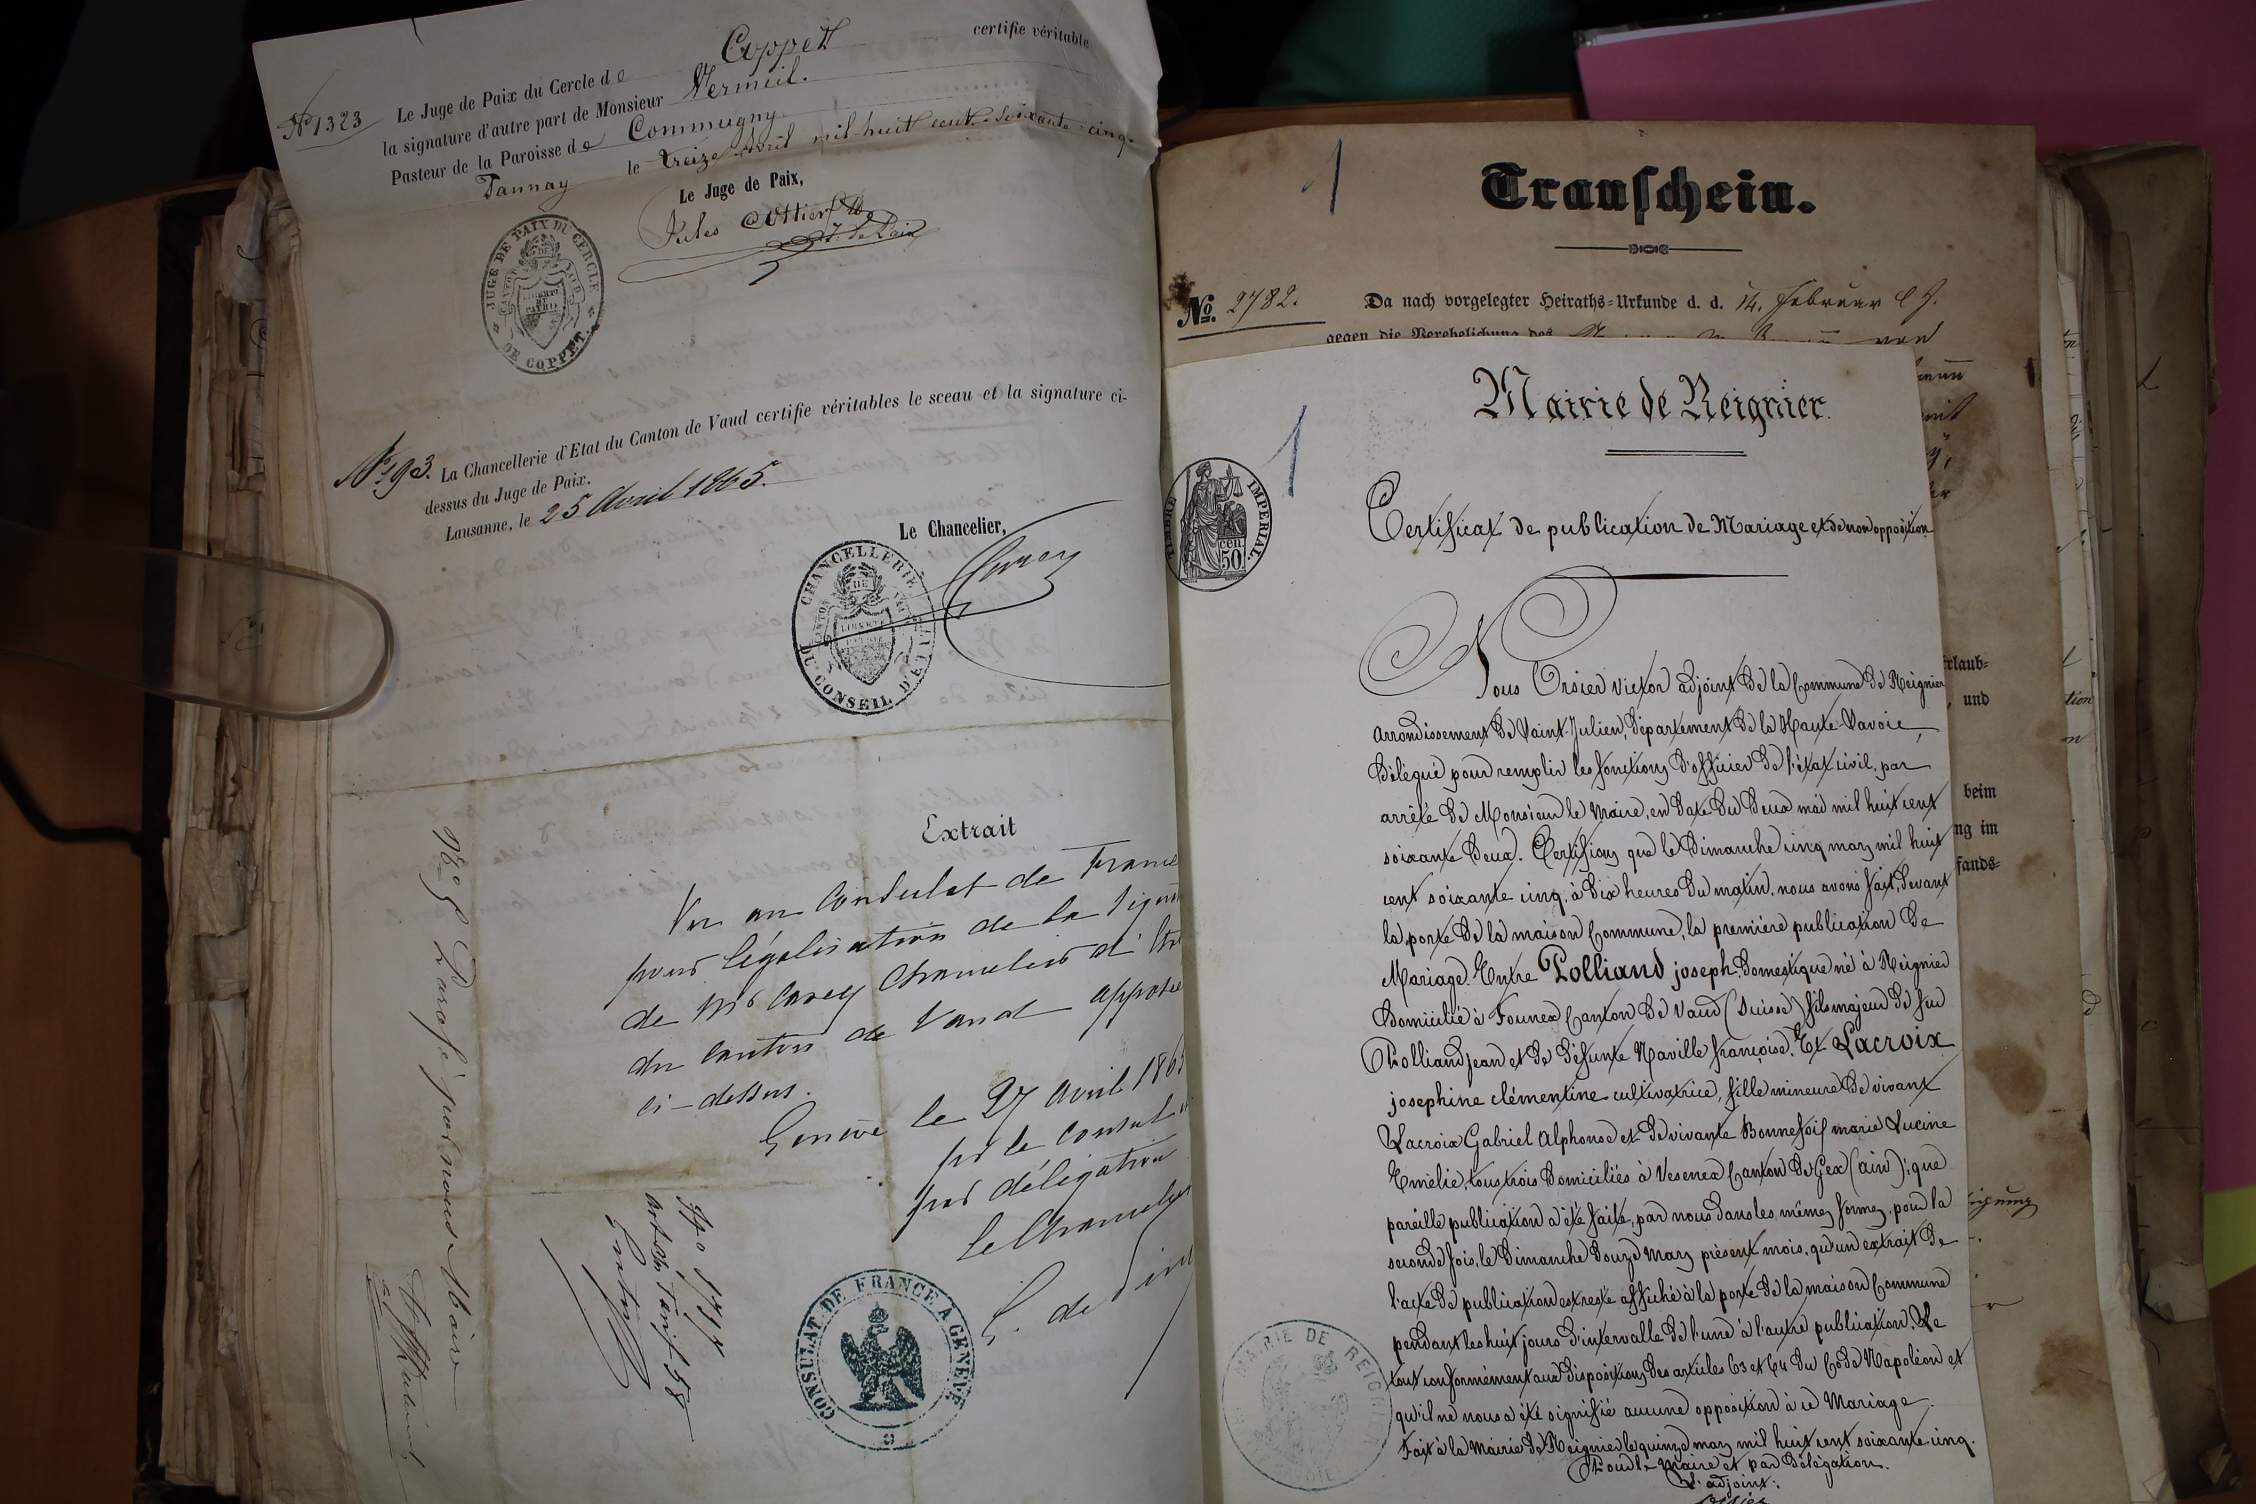 No 1323
Le Juge de Paix du Cercle de Coppet certifie véritable
la signature d'autre part de Monsieur Vermeil.
Pasteur de la Paroisse de Commugny
Tannay le treize Avril mil huit cent soixante cinq.
Le Juge de Paix,
Jules
J. de Paix
JUGE DE PAIX DU CERCLE
CANTON DE VAUD
LIBERTÉ ET PATRIE
DE COPPET.
No 193. La Chancellerie d'Etat du Canton de Vaud certifie véritables le sceau et la signature ci-
dessus du Juge de Paix.
Lausanne, le 25 Avril 1865.
Le Chancelier,
Carey
CHANCELLERIE
CANTON DE VAUD
LIBERTÉ PATRIE
DU CONSEIL D'ÉTAT
Extrait
Vu au Consulat de France
pour légalisation de la sign
de Mr Carey Chancelier d'
du canton de Vaud apposée
ci-dessus.
Genève le 27 avril 186
pr le Consul
par délégation
le Chancelier
G. de
CONSULAT DE FRANCE A GENÈVE
No 5 Parafé par nous Maire
Art. Tarif 58
Trauschein.
1
No. 2782.
Da nach vorgelegter Heiraths-Urkunde d. d. 14. Februar d. J.
gegen die Verehelichung des von
rlaub-
, und
beim
ng im
fands-
Mairie de Reignier.
1
TIMBRE IMPERIAL.
50 cen
Certificat de publication de Mariage et de non opposition
Nous Orsier Victor adjoint de la Commune de Reignier
arrondissement de Saint-Julien, département de la Haute-Savoie,
délégué pour remplir les fonctions d'officier de l'état civil, par
arrêté de Monsieur le Maire, en date du deux mai mil huit cent
soixante deux. Certifions que le Dimanche cinq mars mil huit
cent soixante cinq, à dix heures du matin, nous avons fait, devant
la porte de la maison Commune, la première publication de
Mariage Entre Polliand joseph, domestique né à Reignier
domicilié à Founex Canton de Vaud (Suisse) fils majeur de feu
Polliand jean et de défunte Naville françoise. Et Lacroix
josephine clémentine cultivatrice, fille mineure de vivant
Lacroix Gabriel Alphonse et de vivante Bonnefoif marie Lucine
Emélie, tous trois domiciliés à Vesenex Canton de Gex (ain); que
pareille publication a été faite, par nous dans les mêmes formes, pour la
seconde fois, le Dimanche douze Mars présent mois, qu'un extrait de
l'acte de publication est resté affiché à la porte de la maison Commune
pendant les huit jours d'intervalle de l'une à l'autre publication, Le
tout conformément aux dispositions des articles 63 et 64 du Code Napoléon et
qu'il ne nous a été signifié aucune opposition à ce Mariage.
Fait à la Mairie de Reignier le quinze mars mil huit cent soixante cinq.
Pour le Maire et par délégation.
L'adjoint:
Orsier
MAIRIE DE REIGN